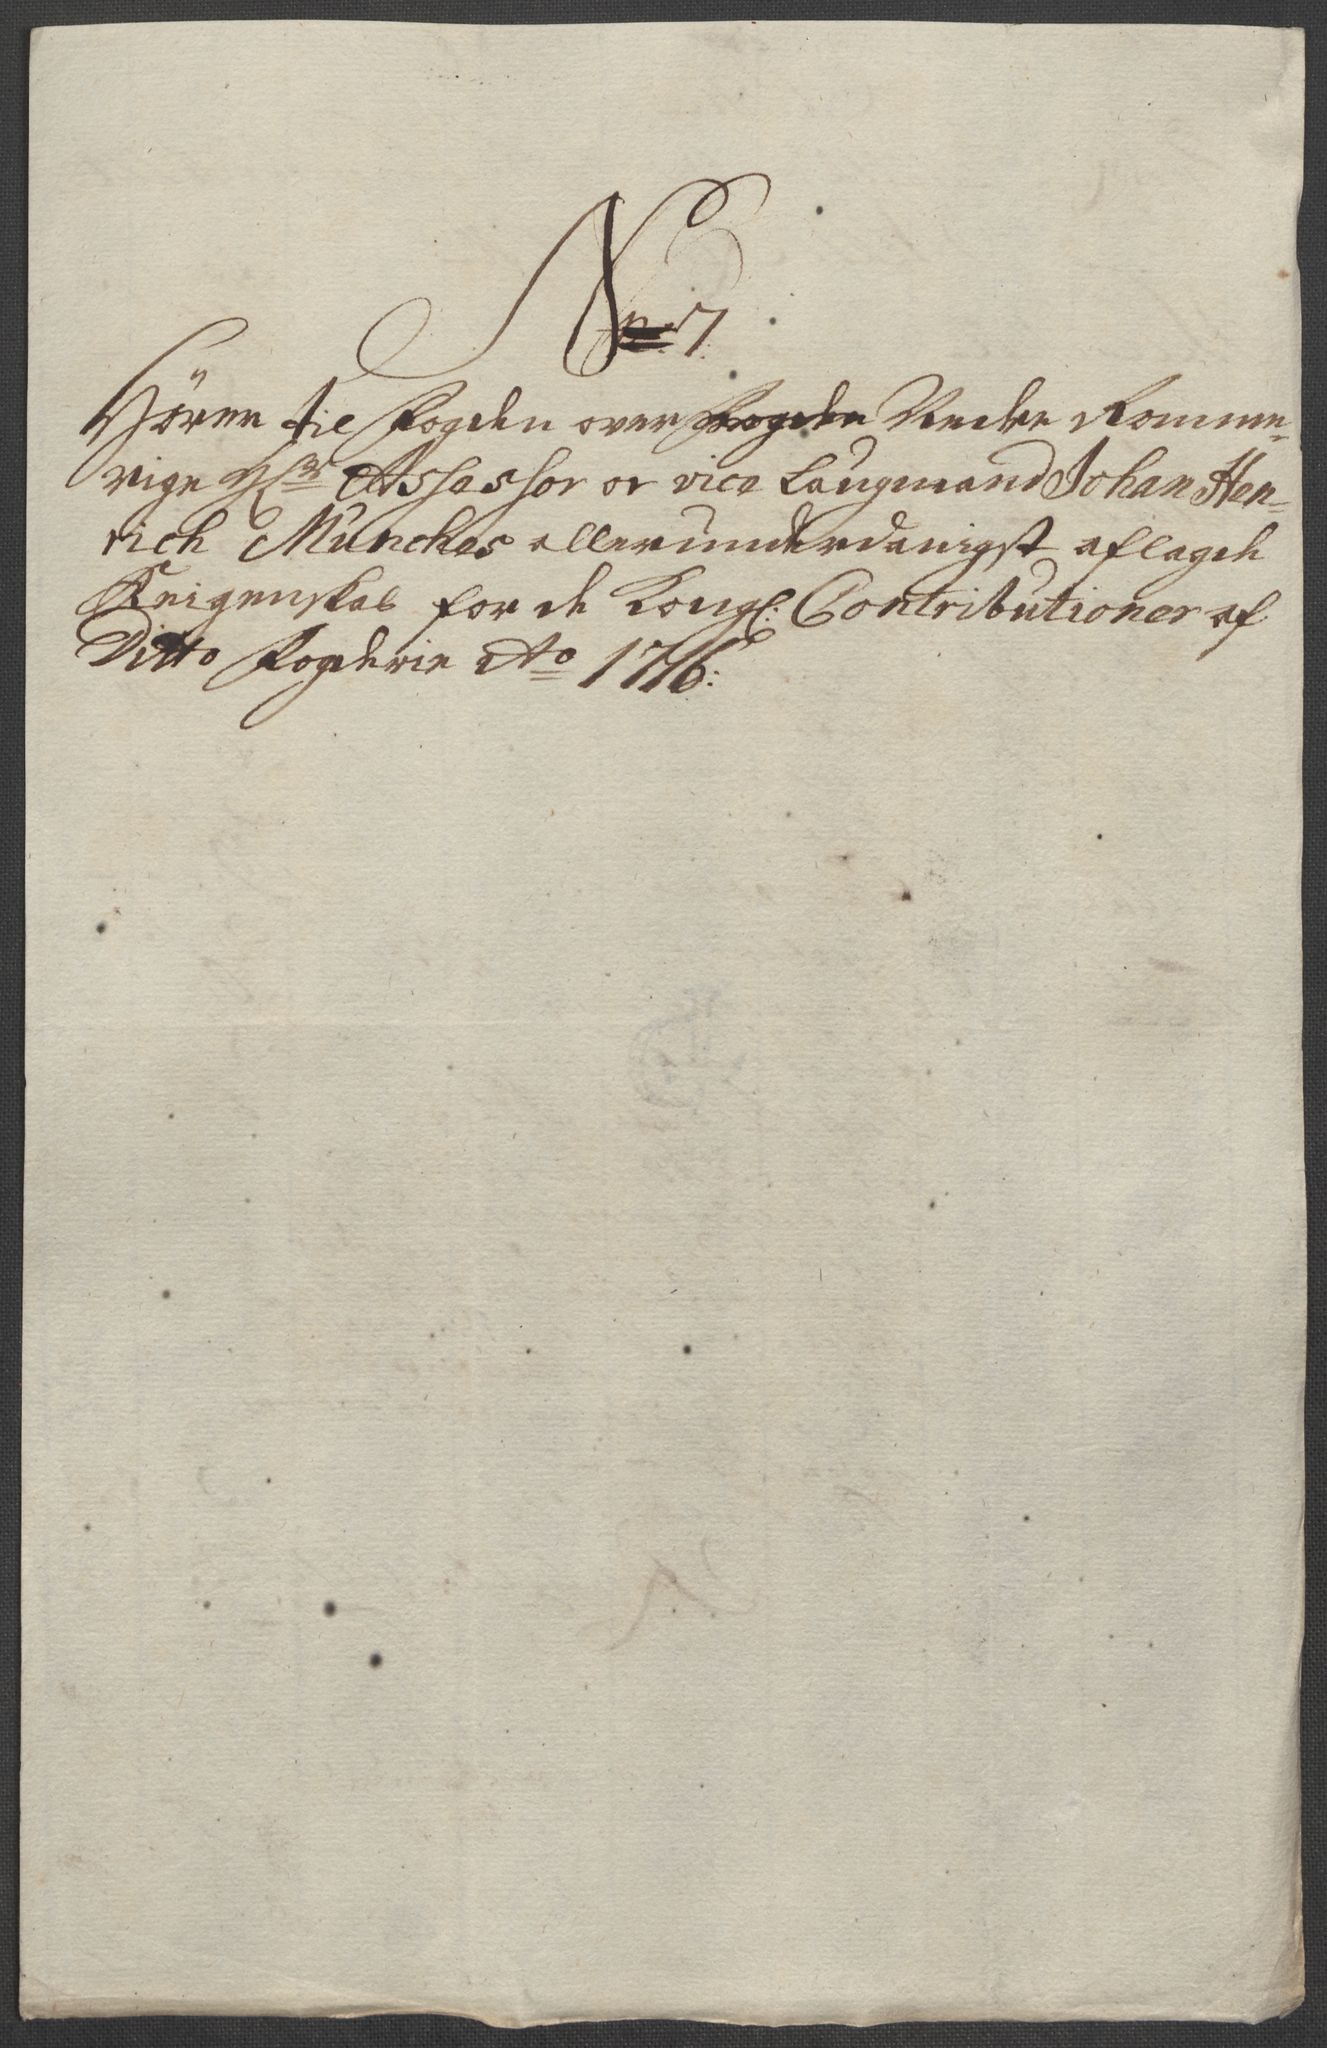 No 7
Hörer til Fogden over Fogden Nedre Romme-
rige Hr Assessor oc vice Laugmand Johan Hen-
rich Munches allerunderdanigst aflagde
Reigenskab for de Kongl: Contributioner af
Ditto Fogderie Ao 1716: